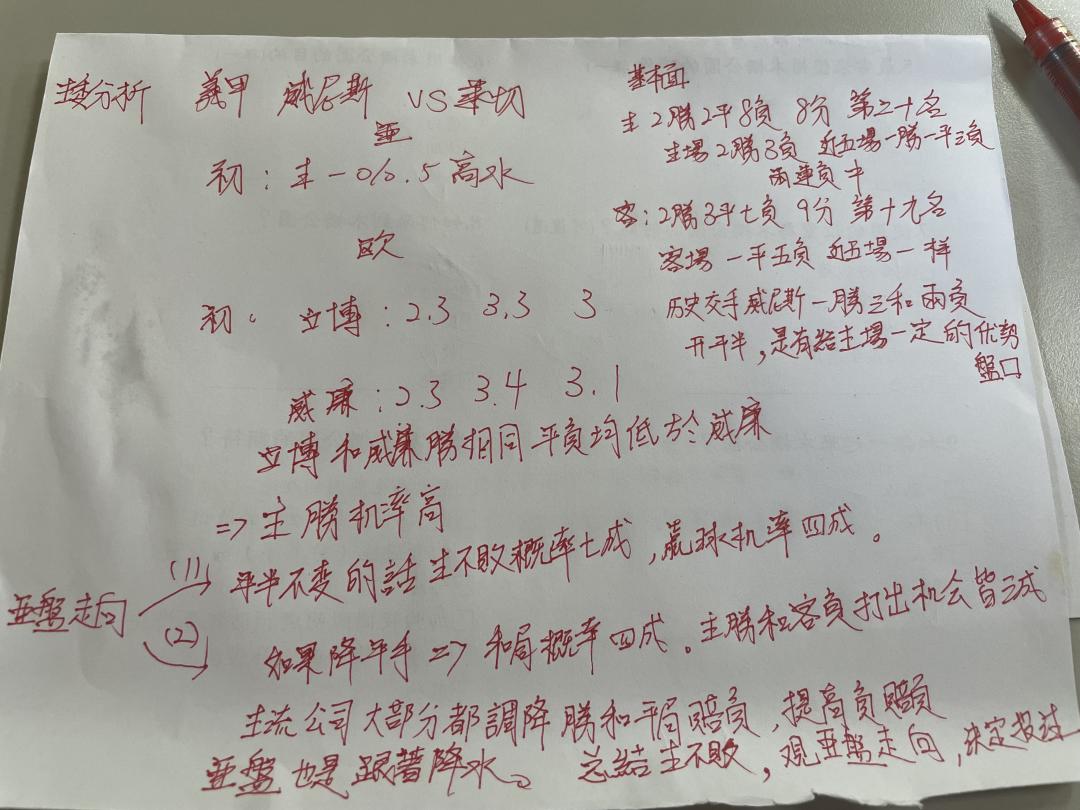 分析 義甲 威尼斯 VS 萊切
亞
初：主-0/0.5高水
欧
初：立博：2.3 3.3 3
威廉：2.3 3.4 3.1
立博和威廉勝相同平負均低於威廉
=> 主勝机率高
亜盤走向
(1) 平半不变的話主不敗概率七成，贏球机率四成。
(2) 如果降平手 => 和局概率四成。主勝和客負打出机会皆三成
主流公司大部分都調降勝和平局賠負，提高負賠負
亜盤也是跟著降水。总結主不敗，观亜盤走向，决定投注
基本面
主2勝2平8負 8分 第二十名
主場2勝3負 近五場一勝一平三負
兩連負中
客：2勝3平七負 9分 第十九名
客場一平五負 近五場一样
历史交手威尼斯一勝三和兩負
开平半，是有給主場一定的优勢
盤口